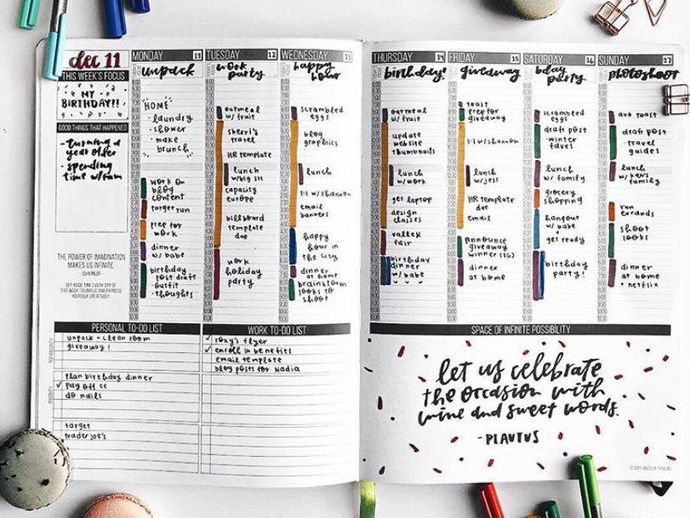 dec 11
THIS WEEK'S FOCUS
MY
BIRTHDAY!!
GOOD THINGS THAT HAPPENED
- turning a
year older
- spending
time w/fam
THE POWER OF IMAGINATION
MAKES US INFINITE
MONDAY
unpack
HOME
- laundry
- shower
- make
brunch
work on
blog
content
target run
prep for
work
dinner
w/ babe
birthday
post draft
- outfit
- thoughts
TUESDAY 12
work
party
oatmeal
w/ fruit
sheri's
travel
HR template
lunch
w/ big sis
capacity
europe
billboard
template
due
work
holiday
party
WEDNESDAY
happy
hour
scrambled
eggs
blog
graphics
lunch
1:1 w/ shannon
email
banners
happy
hour in
the city
dinner
at home
brainstorm
looks to
shoot
THURSDAY 14
birthday!
oatmeal
w/ fruit
update
website
thumbnails
lunch
w/ work
get laptop
design
classes
valley
fair
birthday
dinner
w/ babe
FRIDAY 15
giveaway
toast
prep for
giveaway
1:1 w/ shannon
lunch
w/ jess
HR template
due
email
announce
giveaway
winner (IG)
dinner
at home
SATURDAY 16
bday
party
scrambled
eggs
draft post
- winter
faves
lunch
w/ family
grocery
shopping
hangout
w/ babe
get ready
birthday
party!
SUNDAY 17
photoshoot
avo toast
draft post
- travel
guides
lunch
w/ ken's
family
run
errands
shoot
looks
dinner
at home
+ netflix
PERSONAL TO-DO LIST
unpack + clean room
giveaway!
plan birthday dinner
✓ pay off cc
do nails
target
trader joe's
WORK TO-DO LIST
✓ roxy's flyer
✓ enroll in benefits
email template
blog posts for Nadia
SPACE OF INFINITE POSSIBILITY
let us celebrate
the occasion with
wine and sweet words.
- PLAUTUS